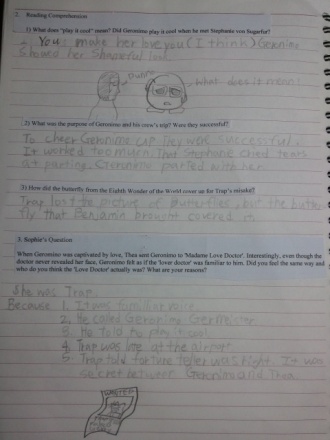 2. Reading Comprehension
1) What does "play it cool" mean? Did Geronimo play it cool when he met Stephanie von Sugarfur?
: You make her love you (I think) Geronimo
showed her
What does it mean?
2) What was the purpose of Geronimo and his crew's trip? Were they successful?
To cheer Geronimo up. They were successful.
It worked too much. That Stephanie cried tears
at parting. Geronimo parted with her.
3) How did the butterfly from the Eighth Wonder of the World cover up for Trap's mistake?
Trap lost the picture of butterflies, but the butter
fly that Benjamin brought covered it.
3. Sophie's Question
When Geronimo was captivated by love, Thea sent Geronimo to 'Madame Love Doctor'. Interestingly, even though the
doctor never revealed her face, Geronimo felt as if the 'lover doctor' was familiar to him. Did you feel the same way and
who do you think the 'Love Doctor' actually was? What are your reasons?
She was Trap.
Because 1. It was familiar voice.
2. He called Geronimo
3. He told to play it cool
4. Trap was late at the airport
5. Trap told fortune teller was right. It was
secret between Geronimo and Thea.
WANTED